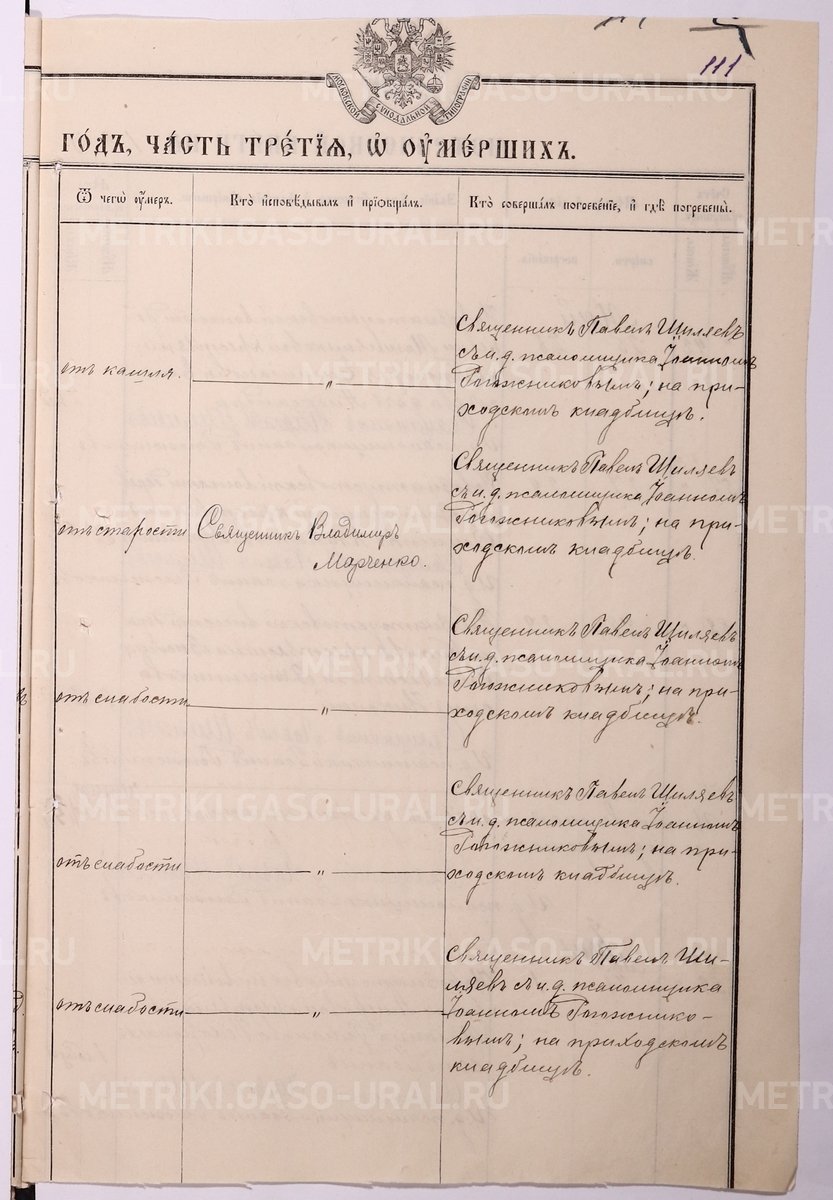 111
МОСКОВСКОЙ СѴНОДАЛЬНОЙ ТИПОГРАФІИ
ГО́ДЪ, ЧА́СТЬ ТРЕ́ТІѦ, Ѡ҆ ОУ҆МЕ́РШИХЪ.
Ѿ чегѡ̀ оу҆́меръ.
Кто̀ и҆сповѣ́дывалъ и҆ прїѡбща́лъ.
Кто̀ соверша́лъ погребе́нїе, и҆ гдѣ̀ погребены̀.
отъ кашля.
"
Священникъ Павелъ Шиляевъ
съ и. д. псаломщика Іоанномъ
Рогожниковымъ; на при-
ходскомъ кладбищѣ.
отъ старости
Священникъ Владимиръ
Марченко.
Священникъ Павелъ Шиляевъ
съ и. д. псаломщика Іоанномъ
Рогожниковымъ; на при-
ходскомъ кладбищѣ.
отъ слабости
"
Священникъ Павелъ Шиляевъ
съ и. д. псаломщика Іоанномъ
Рогожниковымъ; на при-
ходскомъ кладбищѣ.
отъ слабости
"
Священникъ Павелъ Шиляевъ
съ и. д. псаломщика Іоанномъ
Рогожниковымъ; на при-
ходскомъ кладбищѣ.
отъ слабости
"
Священникъ Павелъ Ши-
ляевъ съ и. д. псаломщика
Іоанномъ Рогожнико-
вымъ; на приходскомъ
кладбищѣ.
METRIKI.GASO-URAL.RU